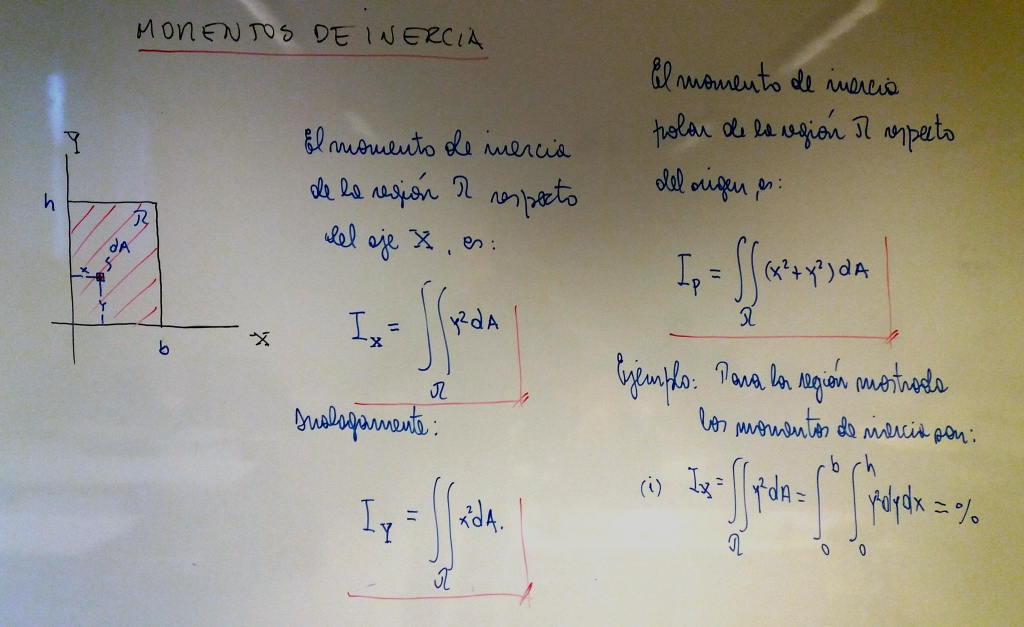 MOMENTOS DE INERCIA
Y
h
R
dA
x
y
b
X
El momento de inercia
de la región R respecto
del eje X, es:
I_x = ∬_R y² dA
Analogamente:
I_Y = ∬_R x² dA.
El momento de inercia
polar de la región R respecto
del origen, es:
I_P = ∬_R (x² + y²) dA
Ejemplo: Para la región mostrada
los momentos de inercia son:
(i) I_x = ∬_R y² dA = ∫_0^b ∫_0^h y² dy dx = %